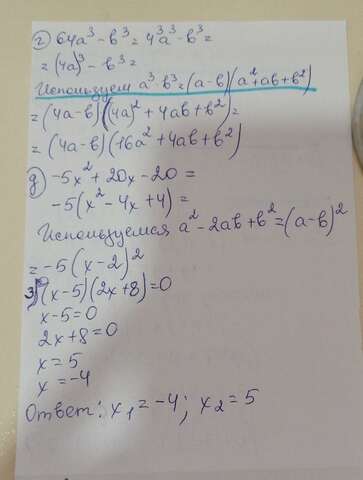 г) 64a³ - в³ = 4³a³ - в³ =
= (4a)³ - в³ =
Используем a³-в³ = (a-в)(a²+aв+в²)
= (4a-в)((4a)² + 4aв+в²) =
= (4a-в)(16a² + 4aв+в²)
д) -5x² + 20x - 20 =
-5(x² - 4x + 4) =
Используемся a² - 2aв + в² = (a-в)²
= -5(x-2)²
3) (x-5)(2x+8)=0
x-5=0
2x+8=0
x=5
x=-4
Ответ: x₁ = -4; x₂ = 5